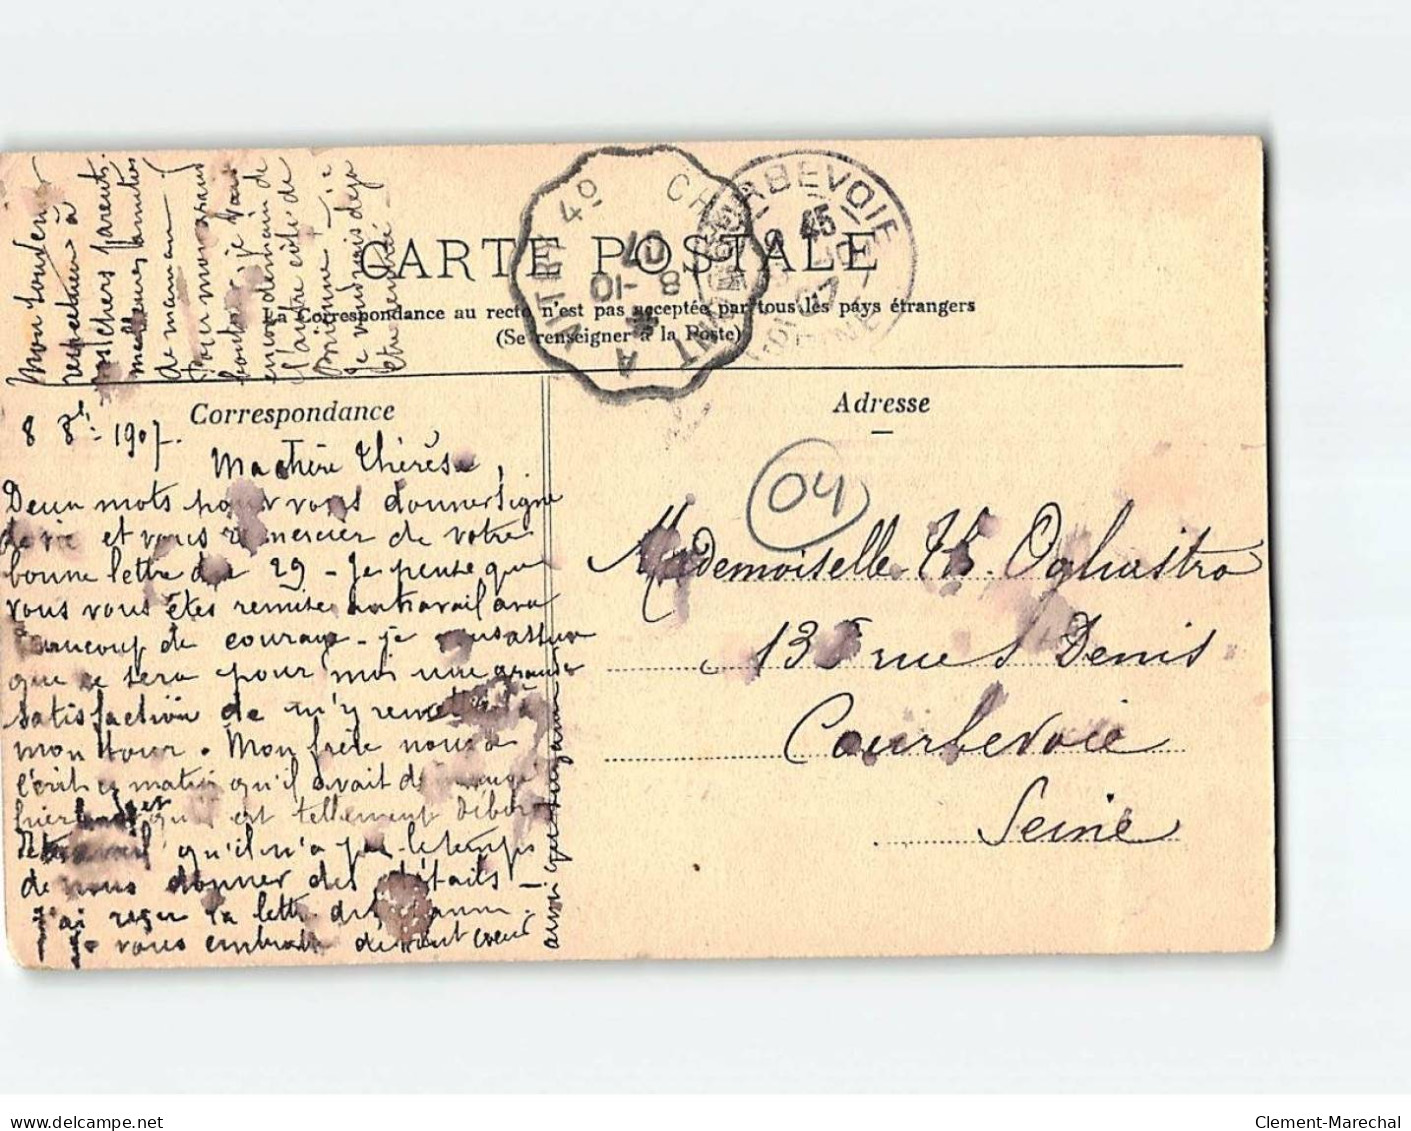 Mon souvenir
respectueux à
vos chers parents.
meilleures amitiés
de maman
Pour mon grand
bonheur je vais
encore demain de
l'autre côté de
Brienne - je
je voudrais déjà
être rentré -
CARTE POSTALE
La Correspondance au recto n'est pas acceptée par tous les pays étrangers
(Se renseigner à la Poste)
VITRY 4º
8 -10
07
COURBEVOIE
SEINE
Correspondance
Adresse
8 8bre 1907.
Ma chère Thérèse,
Deux mots pour vous donner signe
de vie et vous remercier de votre
bonne lettre du 29 - Je pense que
vous vous êtes remise au travail avec
beaucoup de courage - je vous assure
que ce sera pour moi une grande
satisfaction de m'y remettre à
mon tour. Mon frère nous a
écrit ce matin qu'il avait déménagé
hier et qu'il est tellement débordé
qu'il n'a pas le temps
de nous donner des détails -
J'ai reçu la lettre de
Je vous embrasse de tout cœur
ainsi que Suzanne
04
Mademoiselle Th. Ogliastro
135 rue St Denis
Courbevoie
Seine
www.delcampe.net
Clement-Marechal